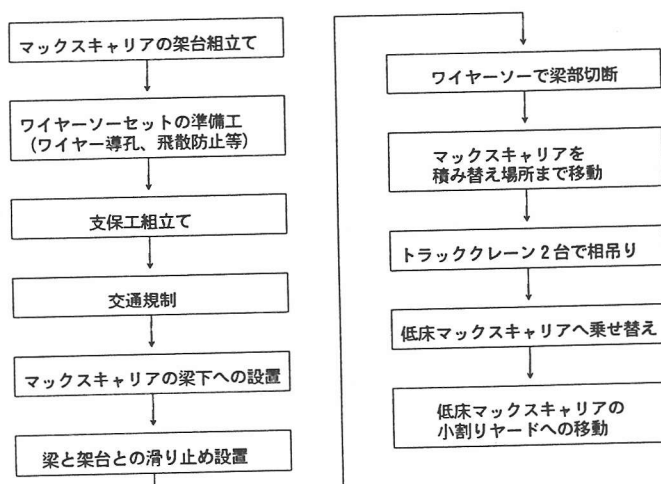 マックスキャリアの架台組立て
ワイヤーソーセットの準備工
(ワイヤー導孔、飛散防止等)
支保工組立て
交通規制
マックスキャリアの梁下への設置
梁と架台との滑り止め設置
ワイヤーソーで梁部切断
マックスキャリアを
積み替え場所まで移動
トラッククレーン2台で相吊り
低床マックスキャリアへ乗せ替え
低床マックスキャリアの
小割りヤードへの移動